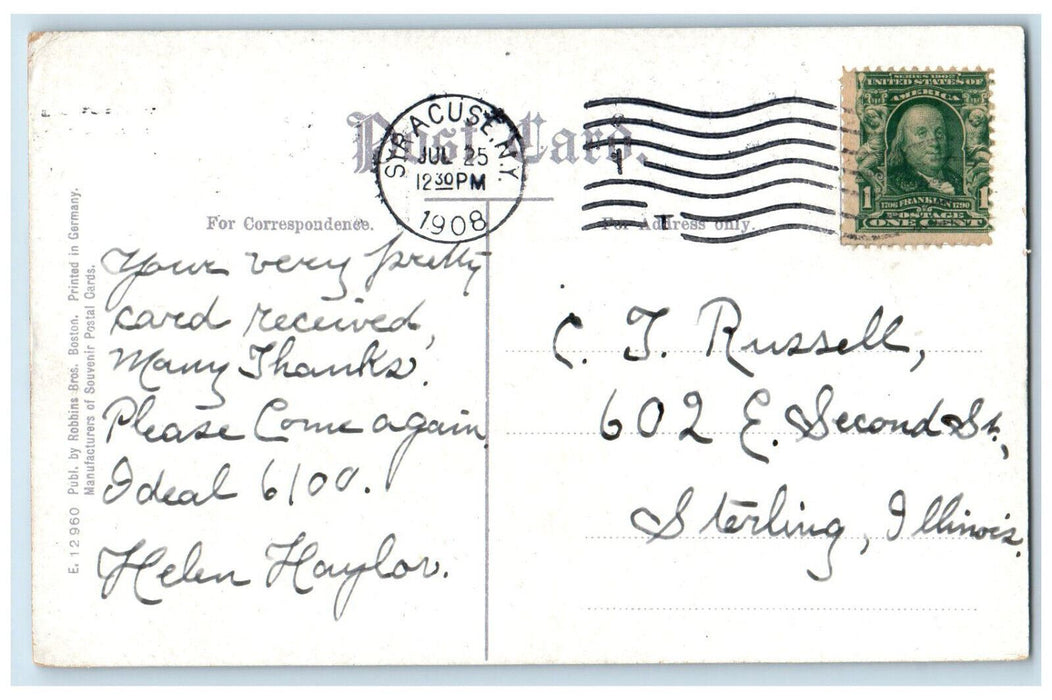 Post Card.
SYRACUSE, N.Y.
JUL 25
12 30 PM
1908
SERIES 1902
UNITED STATES OF
AMERICA
1 1
1706 FRANKLIN 1790
POSTAGE
ONE CENT
For Correspondence.
For Address only.
Your very pretty
card received,
Many Thanks.
Please Come again
Ideal 6100.
Helen Haylor.
C. T. Russell,
602 E. Second St.,
Sterling, Illinois.
E. 12960 Publ. by Robbins Bros. Boston. Printed in Germany.
Manufacturers of Souvenir Postal Cards.